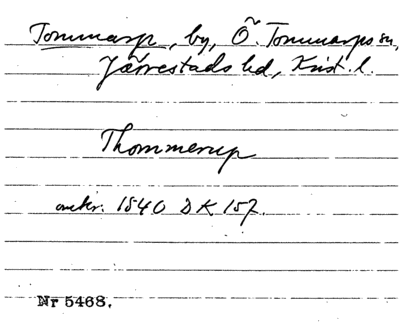 Tommarp, by, Ö. Tommarps sn,
Järrestads hd, Krist. l.
Thommerup
omkr. 1540 DK 157.
Nr 5468.